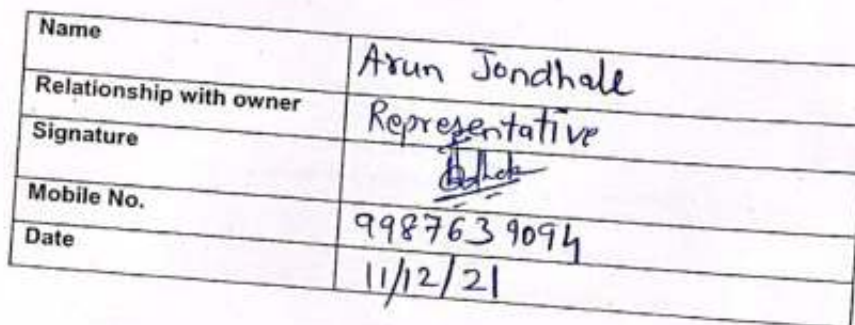 Name Arun Jondhale
Relationship with owner Representative
Signature
Mobile No. 9987639094
Date 11/12/21